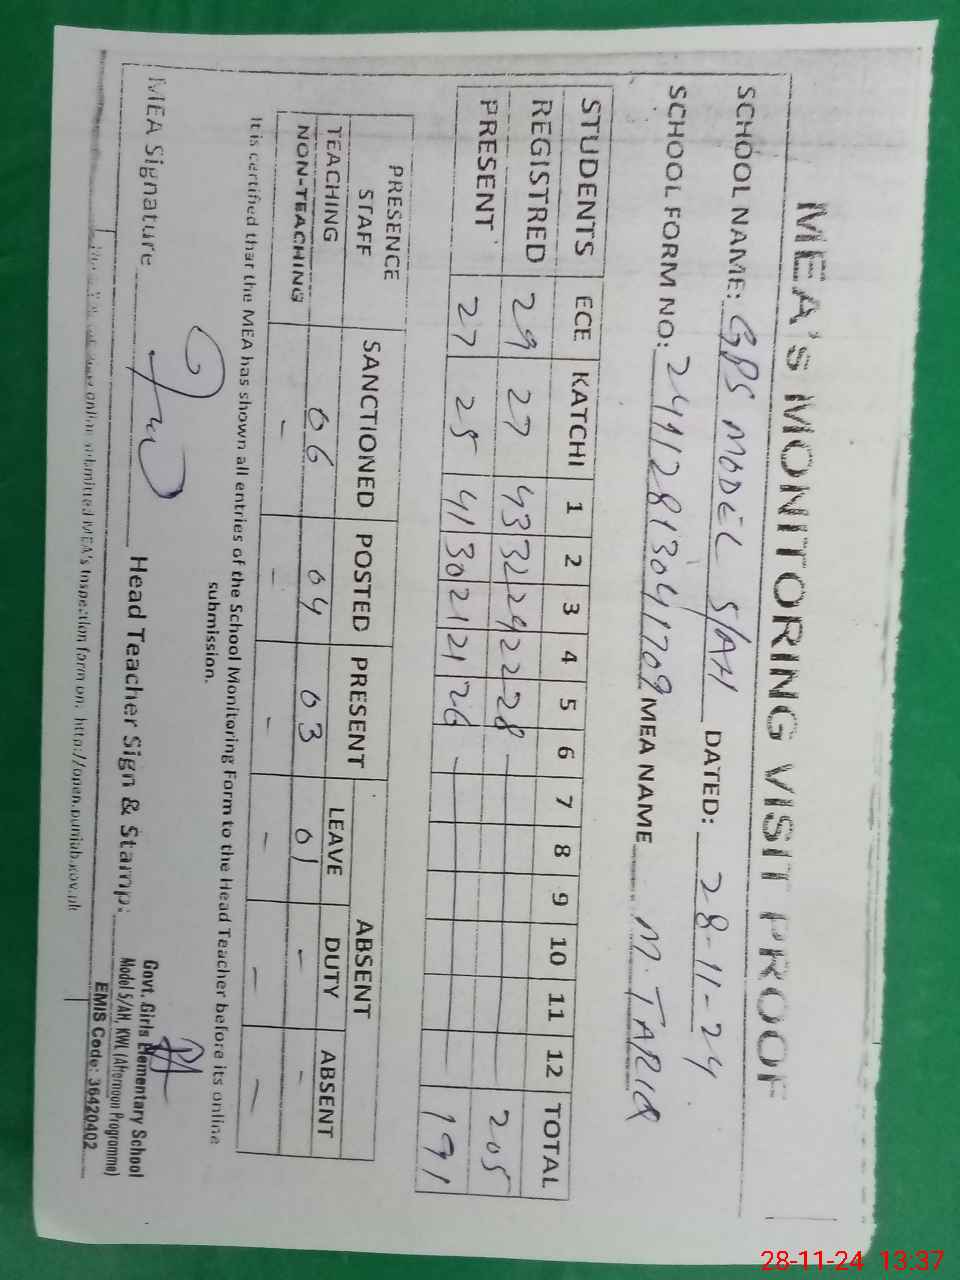 MEA's MONITORING VISIT PROOF
SCHOOL NAME: GPS MODEL 5/AH DATED: 28-11-24
SCHOOL FORM NO: MEA NAME M. TARIQ
STUDENTS ECE KATCHI 1 2 3 4 5 6 7 8 9 10 11 12 TOTAL
REGISTRED 29 27 43 32 24 22 28 — 205
PRESENT 27 25 41 30 21 21 26 — 191
PRESENCE SANCTIONED POSTED PRESENT ABSENT
STAFF LEAVE DUTY ABSENT
TEACHING 06 04 03 01 - -
NON-TEACHING - - - - - -
It is certified that the MEA has shown all entries of the School Monitoring Form to the Head Teacher before its online
submission.
MEA Signature Head Teacher Sign & Stamp:
Govt. Girls Elementary School
Model 5/AH, KWL (Afternoon Programme)
EMIS Code: 36420402
online submitted MEA's Inspection form on: http://open.punjab.gov.pk
28-11-24 13:37